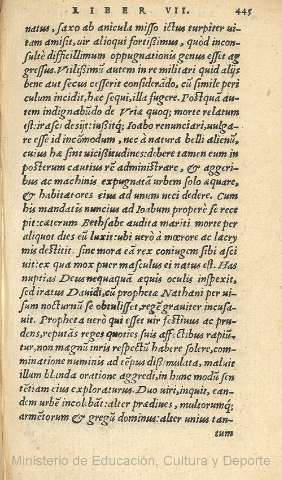 LIBER VII. 445
natus, saxo ab anicula misso ictus turpiter ui-
tam amisit, uir alioqui fortissimus, quòd incon-
sultè difficillimum oppugnationis genus esset ag
gressus. Vtilißimũ autem in re militari quid alijs
bene aut secus cesserit considerãdo, cũ simile peri
culum incidit, hæc sequi, illa fugere. Postquã au-
tem indignabũdo de Vria quoq; morte relatum
est: irasci desijt: iußitq; Ioabo renunciari, uulga-
re esse id incõmodum, nec à natura belli alienũ,
cuius hæ sint uicißitudines: debere tamen eum in
posterum cautius rẽ administrare, & aggeri-
bus ac machinis expugnatã urbem solo æquare,
& habitatores eius ad unum neci dedere. Cum
his mandatis nuncius ad Ioabum properè se rece
pit: cæterum Bethsabe audita mariti morte per
aliquot dies eũ luxit: ubi uerò à mœrore ac lacry
mis destitit, sine mora eã rex coniugem sibi asci
uit: ex qua mox puer masculus ei natus est. Has
nuptias Deus nequaquã æquis oculis inspexit,
sed iratus Dauidi, cũ prophetæ Nathani per ui-
sum nocturnũ se obtulisset, regẽ grauiter incusa-
uit. Propheta uerò qui esset uir festiuus ac pru-
dens, reputãs reges quoties suis affectibus rapiũ-
tur, non magnũ iuris respectũ habere solere, com-
minatione numinis ad tẽpus dißimulata, maluit
illum blanda oratione aggredi, in hunc modũ sen
tẽtiam eius exploraturus. Duo uiri, inquit, ean-
dem urbẽ incolebãt: alter prædiues, multorumq;
armẽtorum & gregũ dominus: alter unius tan-
tum
Ministerio de Educación, Cultura y Deporte